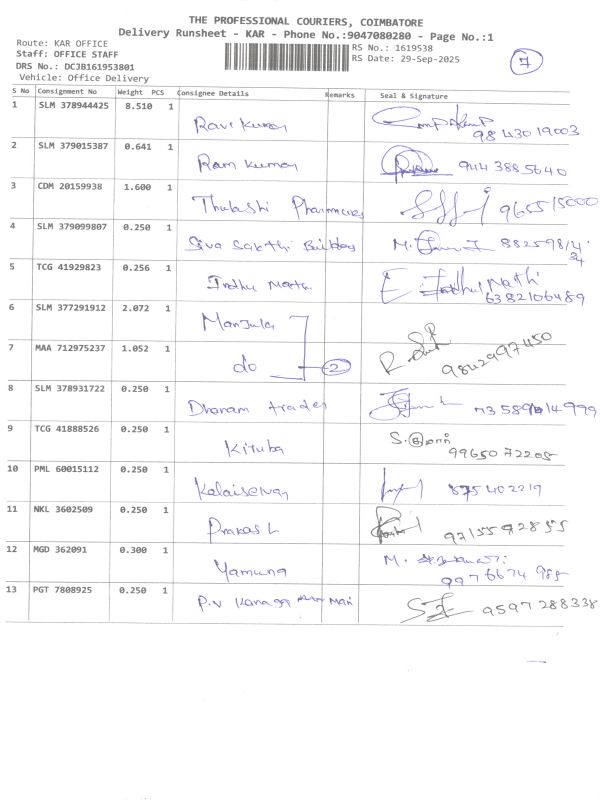 THE PROFESSIONAL COURIERS, COIMBATORE
Delivery Runsheet - KAR - Phone No.:9047080280 - Page No.:1
Route: KAR OFFICE
RS No.: 1619538
Staff: OFFICE STAFF
RS Date: 29-Sep-2025
7
DRS No.: DCJB161953801
Vehicle: Office Delivery
S No Consignment No Weight PCS Consignee Details Remarks Seal & Signature
1 SLM 378944425 8.510 1 Ravi Kumar 9843019003
2 SLM 379015387 0.641 1 Ram Kumar 944 388 5640
3 CDM 20159938 1.600 1 Thulashi Pharmacies 965515000
4 SLM 379099807 0.250 1 Siva Sakthi Builders M.
5 TCG 41929823 0.256 1 Indhu Mathi E. Indhu Mathi 6382106489
6 SLM 377291912 2.072 1 Manjula
7 MAA 712975237 1.052 1 do 2 9842997450
8 SLM 378931722 0.250 1 Dharam trades
9 TCG 41888526 0.250 1 Kituba 9965072205
10 PML 60015112 0.250 1 Kalaiselvan 875402219
11 NKL 3602509 0.250 1 Prakash 9715592855
12 MGD 362091 0.300 1 Yamuna M.
13 PGT 7808925 0.250 1 P.V Kanaga Mani 9597288338